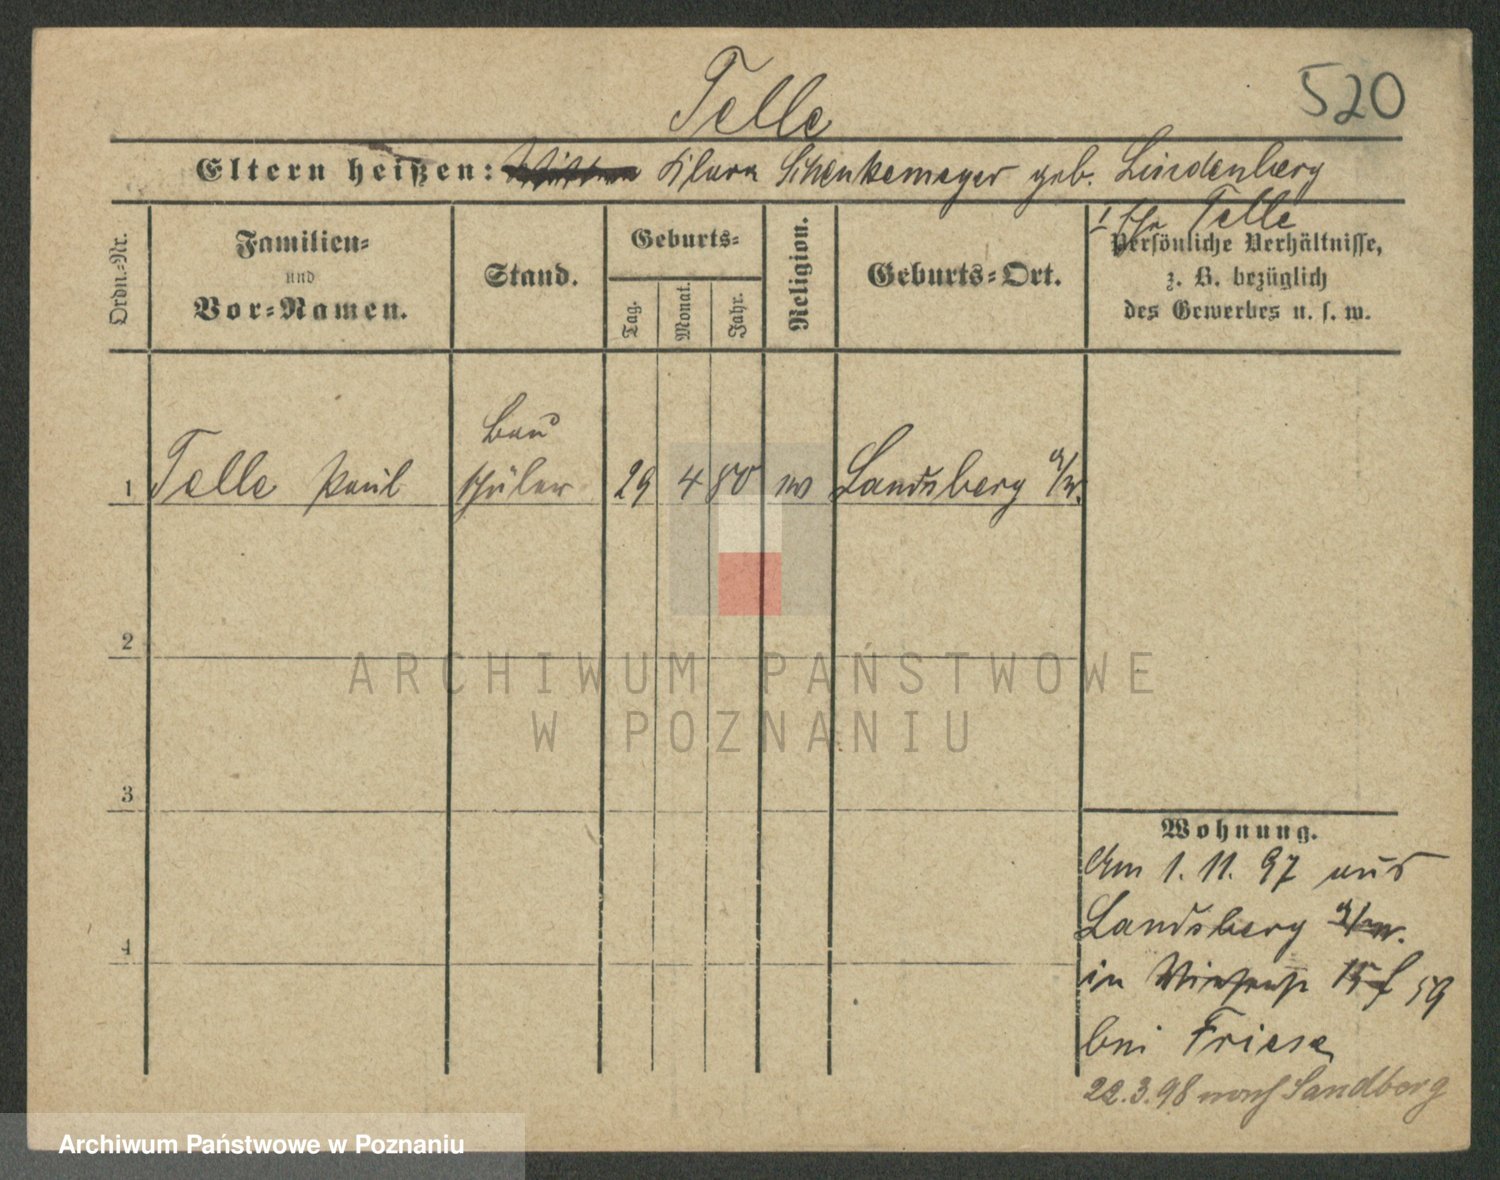 Telle
520
Eltern heißen: Klara Schenkemeyer geb. Lindenberg
I Ehe Telle
Ordn.=Nr.
Familien=
und
Vor=Namen.
Stand.
Geburts=
Tag.
Monat.
Jahr.
Religion.
Geburts=Ort.
Persönliche Verhältnisse,
z. B. bezüglich
des Gewerbes u. s. w.
Bau
1 Telle Paul schüler 29 4 80 ev Landsberg a/w.
2
3
4
Wohnung.
Am 1. 11. 97 aus
Landsberg a/w.
in 15 59
bei Friese
22.3.98 nach Landberg
ARCHIWUM PAŃSTWOWE
W POZNANIU
Archiwum Państwowe w Poznaniu